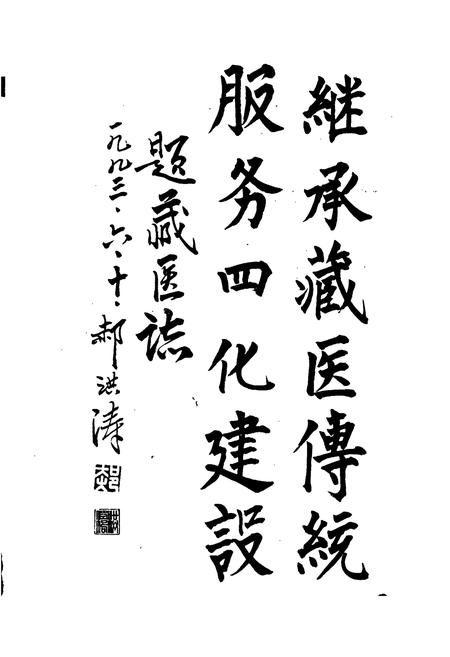 继承藏医傳統
服务四化建設
题藏医誌
一九九三·六·十·郝洪涛